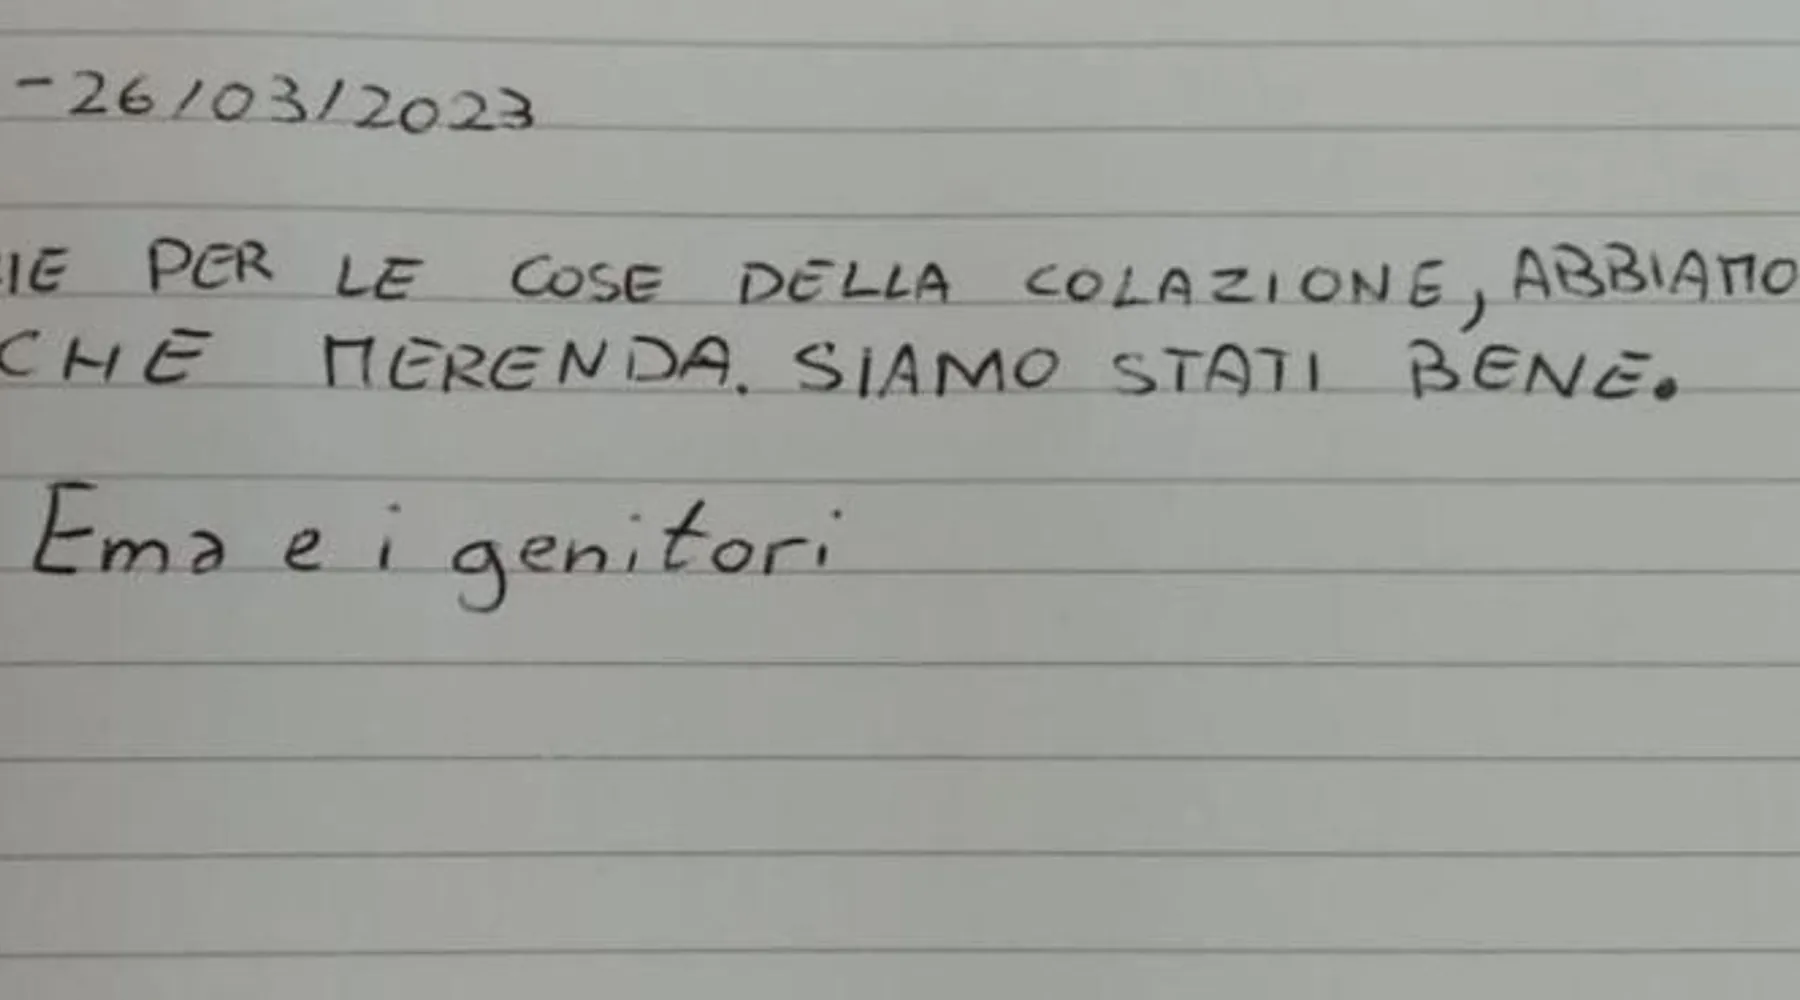 -26/03/2023
IE PER LE COSE DELLA COLAZIONE, ABBIAMO
CHE MERENDA. SIAMO STATI BENE.
Ema e i genitori